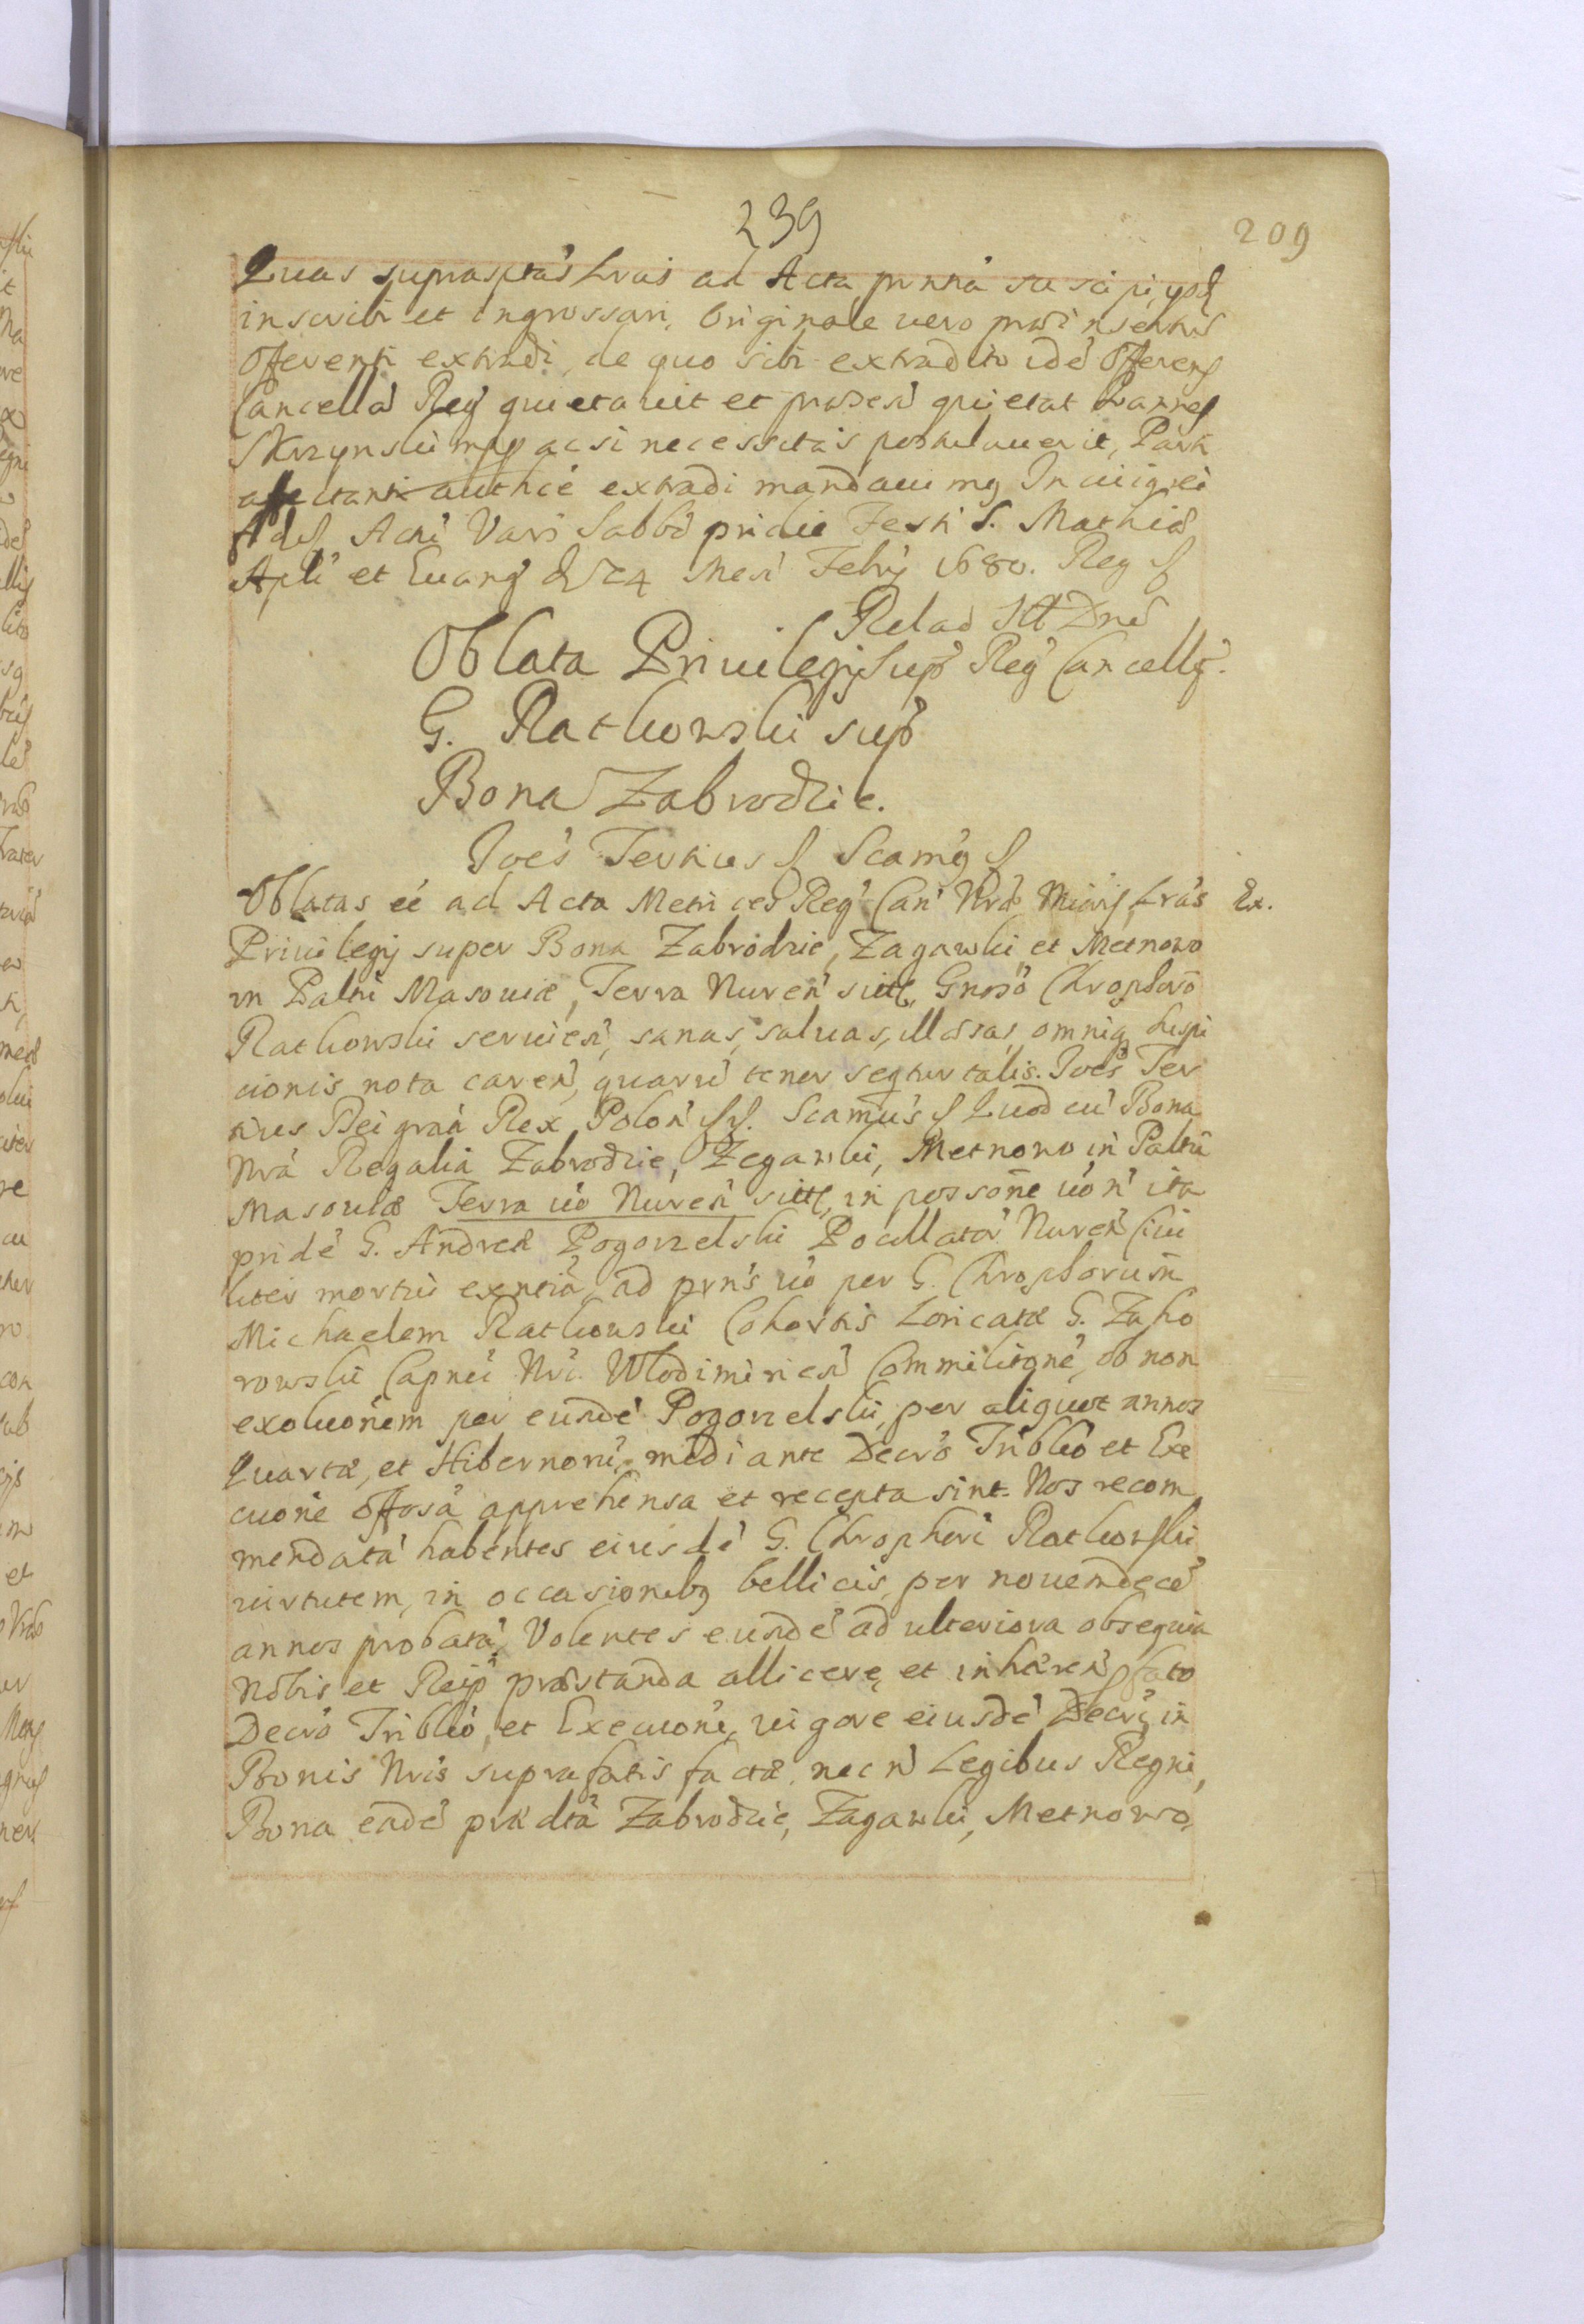 239
209
Quas suprasptás Lras ad Acta pnntá suscipi, ppq
inscribi et ingrossari, Originale vero præinsertũ
Offerenti extradi, de quo sibi extradito idé Offerens
Cancellã Reg quietavit et præseñ quietat
Skrzynski mpp ac si necessitas postulaverit, Parti
affectanti authcé extradi mandavimg In cuig rei
fideſ Actũ Vars Sabbo pridie Festi S. Mathiæ
Apli et Euang d 24 Mesi Febrj 1680. Reg
Relao Ill Dni
Oblata Privilegij Sup Reg Cancellj.
G. Ratkowski sup
Bona Zabrodzie.
Joés Tertius ſ Scamg ſ
Oblatas eé ad Acta Metrices Reg Can Nræ Miorj Lrás Ex.
Privilegij super Bona Zabrodzie, Zagawki et Metnowo
in Paltũ Masoviæ, Terra Nureñ sitt, Gnoso Chrophoro
Ratkowski servieñ, sanas, salvas, illæsas, omniq suspi
cionis nota careñ, quarũ tenor seqtur talis. Joés Ter
tius Dei graá Rex Poloñ ſſ. Scamus ſ Quod cũ Bona
Nrá Regalia Zabrodzie, Zegawki, Metnowo in Paltũ
Masoviæ Terra vó Nureñ sitt, in possone vó ñ ita
pridé G. Andreæ Pogorzelski Pocillator Nureñ Civi
liter mortui exntiá, ad prns vó per G. Chrophorum
Michaelem Ratkowski Cohortis Loricatæ G. Zaho
rowski Capnei Nri Wlodimirieñ Commilitoné, ob non
exolucõnem per eundé Pogorzelski, per aliquot annos
Quartæ, et Hibernorũ, mediante Decró Tribló et Exe
cuone offosá apprehensa et recepta sint. Nos recom
mendatá habentes eiusdé G. Chropheri Ratkowski
virtutem, in occasionibq bellicis, per novemdecé
annos probatá, Volentes eundé ad ulteriora obsequia
Nobis et Reip præstanda allicere, et inhæreñ pfato
Decró Tribló, et Execuoni, vigore eiusdé Decri, in
Bonis Nris suprafatis factæ, nec ñ Legibus Regni,
Bona eadé prædtá Zabrodzie, Zagawki, Metnowo,